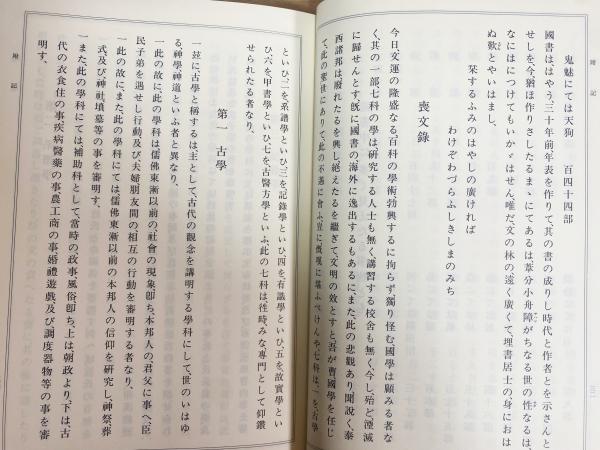 雑記
鬼魅にては天狗　百四十四部
國書は、はやう三十年前年表を作りて、其の書の成りし時代と作者とを示さんと
せしを、今猶ほ作りさしたるまゝにてあるは、葦分小舟障がちなる世の性なるは、
なにはにつけてもいかゞはせん、唯だ、文の林の遠く廣くて、埋書居士の身におは
ぬ歎とやいはまし。
栞するふみのはやしの廣ければ
わけぞわづらふしきしまのみち
喪文錄
今日文運の隆盛なる、百科の學術勃興するに拘らず、獨り怪む、國學は顧みる者な
く、其の一部七科の學は研究する人士も無く、講習する校舍も無く、今し殆ど湮滅
に歸せんとす、既に國書の、海外に逸出するもあるに、また、此の悲觀あり、聞說く、泰
西諸邦は廢れたるを興し、絕えたるを繼ぎて、文明の效とすと、吾が曹國學を任じ
て、此の聚世にありて、此の不遇に會ふ、豈に慨嘆に堪ふべけんや、七科は、一を、古學
附記
といひ、二を、系譜學といひ、三を、記錄學といひ、四を、有識學といひ、五を、故實學とい
ひ、六を、甲書學といひ、七を、古醫方學といふ、此の七科は、徃時みな専門として仰鑽
せられたる者なり。
第一　古學
一茲に古學と稱するは、主として、古代の觀念を講明する學科にして、世のいはゆ
る神學、神道といふ者と異なり、
一此の故に、此の學科は、儒佛東漸以前の社會の現象、卽ち、本邦人の、君父に事へ、臣
民子弟を遇せし行動、及び夫婦朋友間の相互の行動を審明する者なり、
一此の故に、また、此の學科にては、儒佛東漸以前の本邦人の信仰を研究し、神祭葬
式、及び、神社、墳墓等の事を審明す、
一また、此の學科にては、補助科として、當時の政事風俗、卽ち、上は、朝政より、下は、古
代の衣食住の事、疾病醫藥の事、農工商の事、婚禮遊戲、及び、調度器物等の事を審
明す、